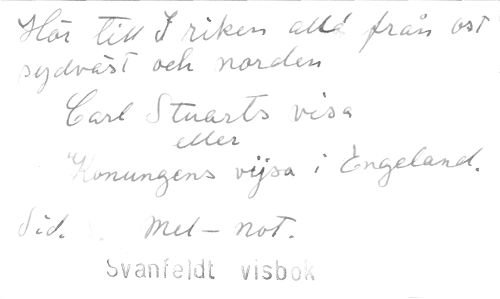 Hör till I riken all från ost
sydväst och norden
Carl Stuarts visa
eller
Konungens vijsa i Engeland.
Sid. Mel-not.
Svanfeldt visbok